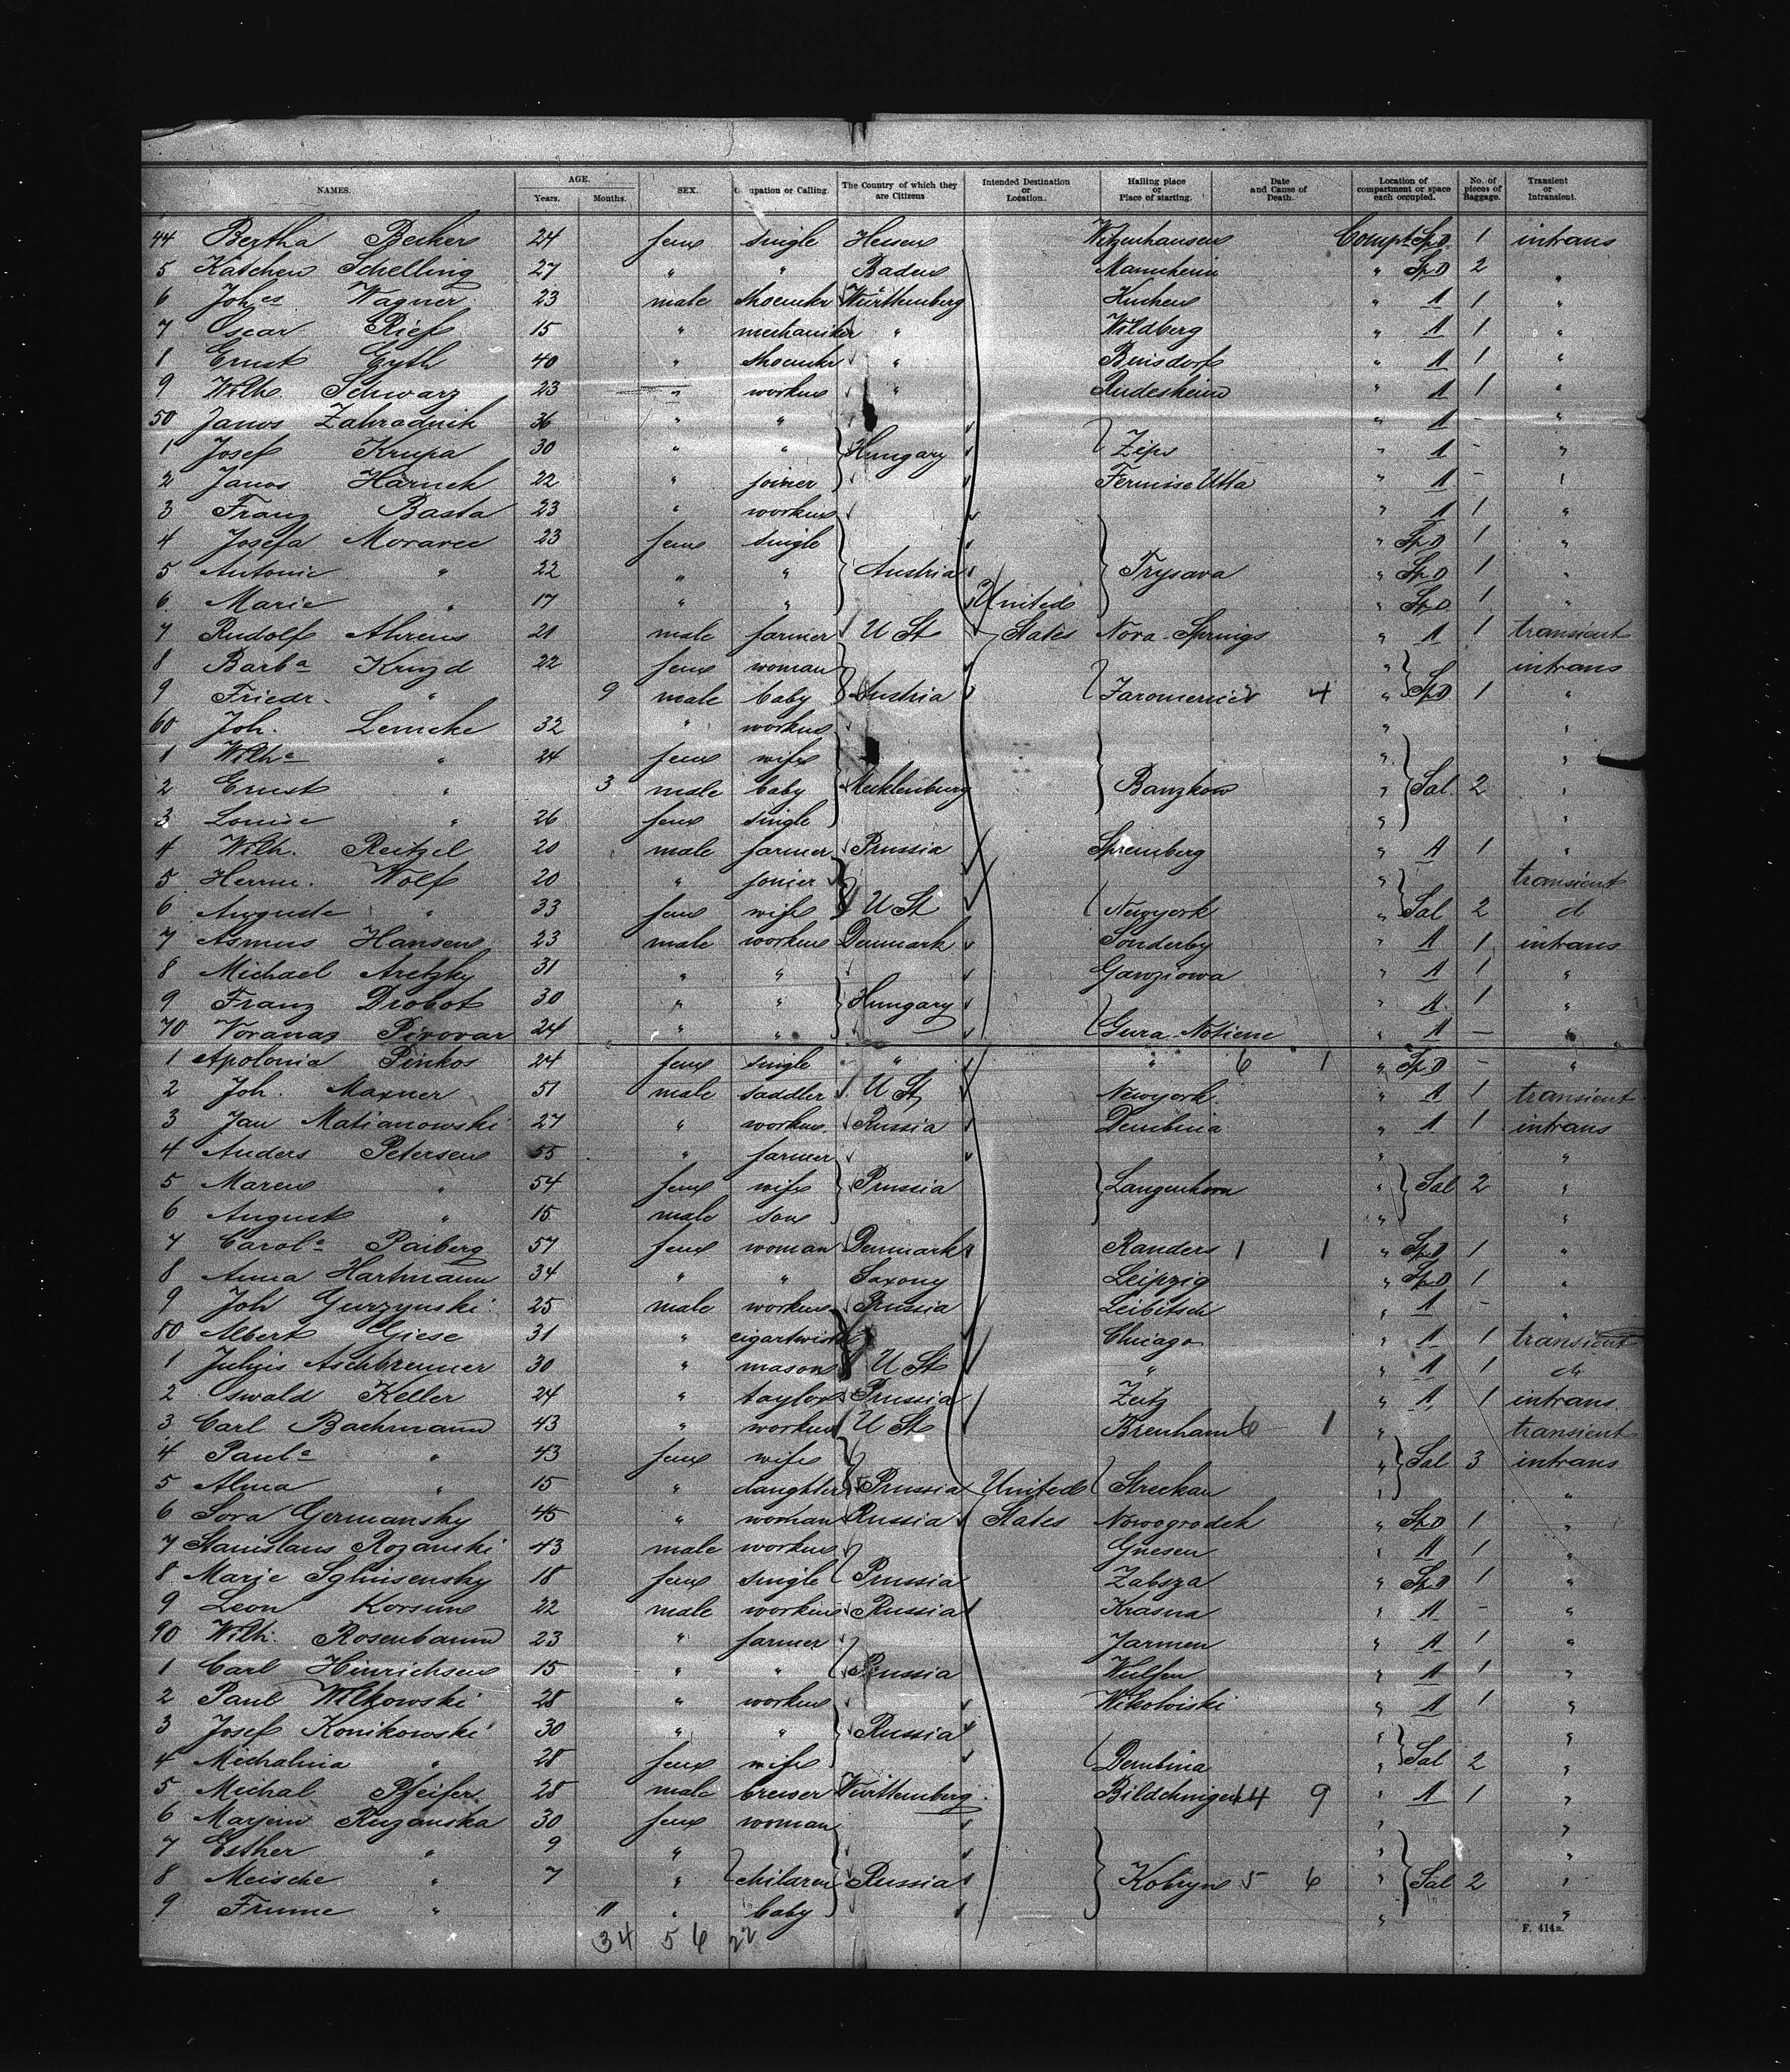 NAMES. AGE. Years. Months. SEX. Occupation or Calling. The Country of which they are Citizens Intended Destination or Location. Hailing place or Place of starting. Date and Cause of Death. Location of compartment or space each occupied. No. of pieces of Baggage. Transient or Intransient.
44 Bertha Becker 24 fem single Hessen Witzenhausen Compt Sp.D 1 intrans
5 Kätchen Schelling 27 " " Baden Mannheim " Sp.D 2 "
6 Joh.es Wagner 23 male shoemkr Württemberg Kuchen " 1 1 "
7 Oscar Rief 15 " mechaniker " Wildberg " 1 1 "
1 Ernst Eyth 40 " shoemkr " " 1 1 "
9 Wilh. Schwarz 23 " worker " Rudesheim " 1 1 "
50 Janos Zahradnik 36 " " " 1 - "
1 Josef Krupa 30 " " Hungary Zips " 1 - "
2 Janos Harnch 22 " joiner " 1 - "
3 Franz Basta 23 " worker " 1 1 "
4 Josefa Moravec 23 fem single " Sp.D 1 "
5 Antonie " 22 " " Austria Trysava " Sp.D 1 "
6 Marie " 17 " " United " Sp.D 1 "
7 Rudolf Ahrens 21 male farmer U St States Nora-Springs " 1 1 transient
8 Barb.a Kruzd 22 fem woman " intrans
9 Friedr. " 9 male baby Austria Jaromeric 4 " Sp.D 1 "
60 Joh. Lemcke 32 " worker " "
1 Wilh.e " 24 fem wife " "
2 Ernst " 3 male baby Mecklenburg Banzkow " Sal 2 "
3 Louise " 26 fem single " "
4 Wilh. Reitzel 20 male farmer Prussia Spremberg " 1 1 "
5 Herm. Wolf 20 " joiner " transient
6 Auguste " 33 fem wife U St Newyork " Sal 2 d
7 Asmus Hansen 23 male worker Denmark Sonderby " 1 1 intrans
8 Michael Aretzky 31 " " Gawziowa " 1 1 "
9 Franz Drobot 30 " " Hungary " 1 1 "
70 Voranaz Pivovar 24 " " Gura " 1 - "
1 Apolonia Pinkos 24 fem single " " 6 1 " Sp.D - "
2 Joh. Maxner 51 male saddler U St Newyork " 1 1 transient
3 Jan Matianowski 27 " worker Russia Dembina " 1 1 intrans
4 Anders Petersen 55 " farmer " "
5 Maren " 54 fem wife Prussia Langenhorn " Sal 2 "
6 August " 15 male son " "
7 Carol.e Paiberg 57 fem woman Denmark Randers 1 1 " Sp.D 1 "
8 Anna Hartmann 34 " " Saxony Leipzig " Sp.D 1 "
9 Joh Gurzynski 25 male worker Prussia Leibitsch " 1 - "
80 Albert Giese 31 " cigartwister Chicago " 1 1 transient
1 Julius Aschbrenner 30 " mason U St " " 1 1 d
2 Oswald Keller 24 " taylor Prussia Zeitz " 1 1 intrans
3 Carl Bachmann 43 " worker U St Brenham 6 1 " transient
4 Paul.e " 43 fem wife " Sal 3 intrans
5 Alma " 15 " daughter Prussia United Streckau " "
6 Sora Germansky 45 " woman Russia States Nowogrodek " Sp.D 1 "
7 Stanislaus Rozanski 43 male worker Gnesen " 1 1 "
8 Marie 18 fem single Prussia Zabsza " Sp.D 1 "
9 Leon Korsun 22 male worker Russia Krasna " 1 - "
90 Wilh. Rosenbaum 23 " farmer Jarmen " 1 1 "
1 Carl Hinrichsen 15 " " Prussia Wulfen " 1 1 "
2 Paul Wilkowski 28 " worker " 1 1 "
3 Josef Konikowski 30 " " Russia " "
4 Michalina " 28 fem wife Dembina " Sal 2 "
5 Michal Pfeifer 28 male brewer Württemberg Bildchingen 44 9 " 1 1 "
6 Marjem Ruzanska 30 fem woman " "
7 Esther " 9 " " "
8 Meische " 7 " children Russia Kobryn 5 6 " Sal 2 "
9 Frume " 11 " baby " "
34 56 22
F. 414a.